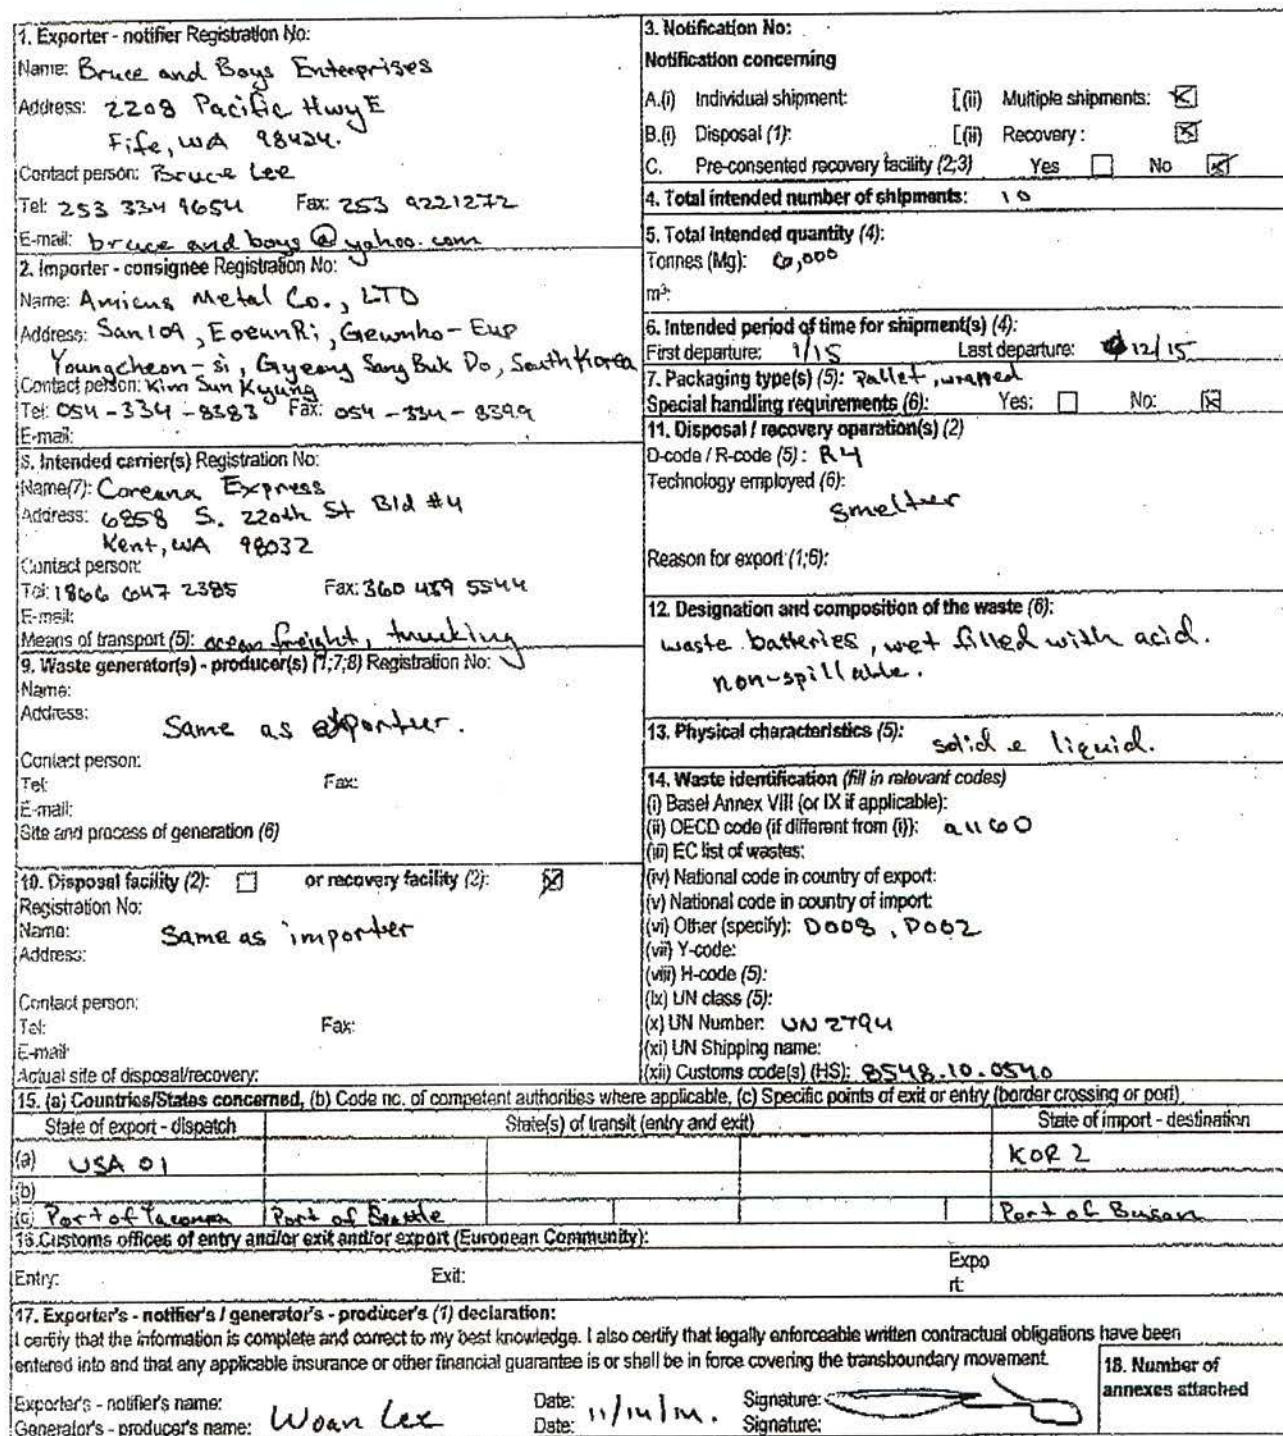 1. Exporter - notifier Registration No:
Name: Bruce and Boys Enterprises
Address: 2208 Pacific Hwy E
Fife, WA 98424.
Contact person: Bruce Lee
Tel: 253 334 9654 Fax: 253 9221272
E-mail: bruce and boys@yahoo.com
2. Importer - consignee Registration No:
Name: Amicus Metal Co., LTD
Address: San 109, EoeunRi, Geumho-Eup
Youngcheon-si, Gyeong Sang Buk Do, South Korea
Contact person: Kim Sun Kyung
Tel: 054-334-8383 Fax: 054-334-8399
E-mail:
8. Intended carrier(s) Registration No:
Name(7): Coreana Express
Address: 6858 S. 220th St Bld #4
Kent, WA 98032
Contact person:
Tel: 1866 647 2385 Fax: 360 459 5544
E-mail:
Means of transport (5): ocean freight, trucking
9. Waste generator(s) - producer(s) (1;7;8) Registration No:
Name:
Address:
Same as exporter.
Contact person:
Tel: Fax:
E-mail:
Site and process of generation (6)
10. Disposal facility (2): or recovery facility (2):
Registration No:
Name: Same as importer
Address:
Contact person:
Tel: Fax:
E-mail:
Actual site of disposal/recovery:
3. Notification No:
Notification concerning
A.(i) Individual shipment: [(ii) Multiple shipments:
B.(i) Disposal (1): [(ii) Recovery :
C. Pre-consented recovery facility (2;3) Yes No
4. Total intended number of shipments: 10
5. Total intended quantity (4):
Tonnes (Mg): 6,000
m³:
6. Intended period of time for shipment(s) (4):
First departure: 1/15 Last departure: 12/15
7. Packaging type(s) (5): Pallet, wrapped
Special handling requirements (6): Yes: No:
11. Disposal / recovery operation(s) (2)
D-code / R-code (5): R4
Technology employed (6):
smelter
Reason for export (1;6):
12. Designation and composition of the waste (6):
waste batteries, wet filled with acid.
non-spillable.
13. Physical characteristics (5): solid & liquid.
14. Waste identification (fill in relevant codes)
(i) Basel Annex VIII (or IX if applicable):
(ii) OECD code (if different from (i)): a1160
(iii) EC list of wastes:
(iv) National code in country of export:
(v) National code in country of import:
(vi) Other (specify): D008, D002
(vii) Y-code:
(viii) H-code (5):
(ix) UN class (5):
(x) UN Number: UN 2794
(xi) UN Shipping name:
(xii) Customs code(s) (HS): 8548.10.0540
15. (a) Countries/States concerned, (b) Code no. of competent authorities where applicable, (c) Specific points of exit or entry (border crossing or port)
State of export - dispatch State(s) of transit (entry and exit) State of import - destination
(a) USA 01 KOR 2
(b)
(c) Port of Tacoma Port of Seattle Port of Busan
16.Customs offices of entry and/or exit and/or export (European Community):
Entry: Exit: Expo
rt:
17. Exporter's - notifier's / generator's - producer's (1) declaration:
I certify that the information is complete and correct to my best knowledge. I also certify that legally enforceable written contractual obligations have been
entered into and that any applicable insurance or other financial guarantee is or shall be in force covering the transboundary movement.
18. Number of
annexes attached
Exporter's - notifier's name: Date: 11/14/14. Signature:
Generator's - producer's name: Woan Lee Date: Signature: